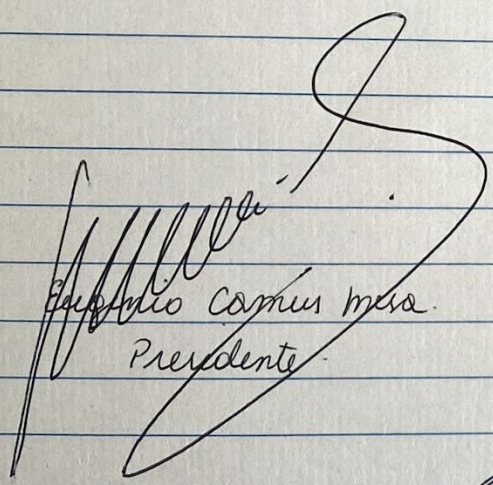 Eugenio Camus Mesa.
Presidente.